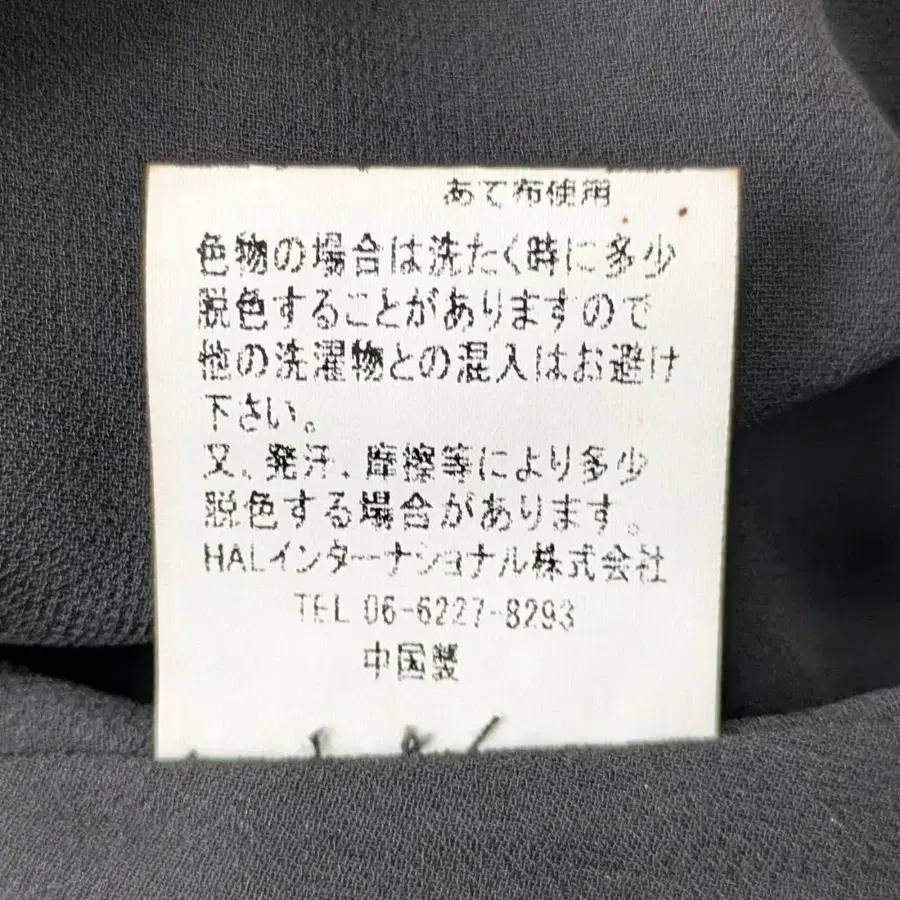 あて布使用
色物の場合は洗たく時に多少
脱色することがありますので
他の洗濯物との混入はお避け
下さい。
又、発汗、摩擦等により多少
脱色する場合があります。
HALインターナショナル株式会社
TEL 06-6227-8293
中国製